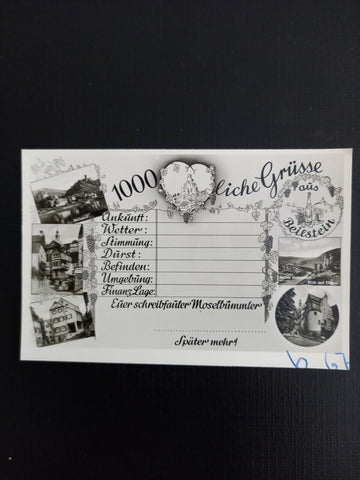 1000 liche Grüsse
aus
Beilstein
Ankunft:
Wetter:
Stimmung:
Durst:
Befinden:
Umgebung:
Finanz Lage:
Euer schreibfauler Moselbummler
Später mehr!